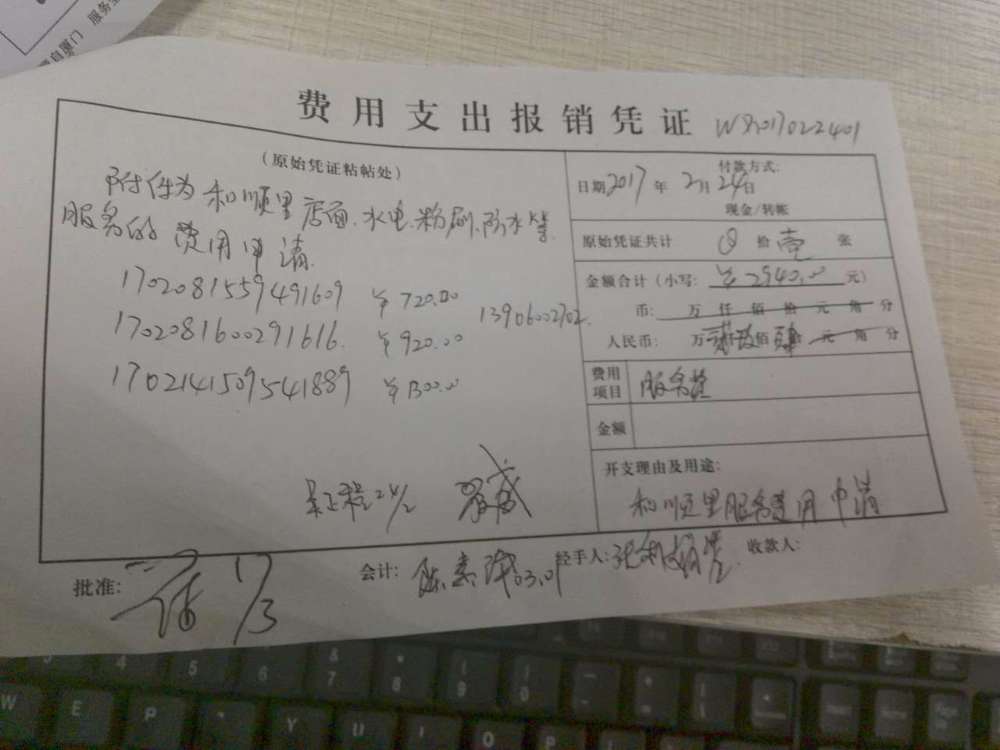 费用支出报销凭证 WX2017022401
(原始凭证粘帖处)
附件为和顺里店面、水电、粉刷、防水等
服务的费用申请
1702081559491609 ¥720.00
1702081600291616. ¥920.00 13906002702.
1702141509541889 ¥1300.00
24/2
付款方式:
日期2017年2月24日
现金/转帐
原始凭证共计 拾壹张
金额合计(小写: ¥2940.00 元)
币: 万仟佰拾元角分
人民币: 万贰仟玖佰肆拾元角分
费用项目 服务费
金额
开支理由及用途:
和顺里服务费用申请
批准: 1/3
会计: 陈 03.01 经手人: 张 收款人:
服务
W E R T Y U I O
4 5 6 7 8 9 0